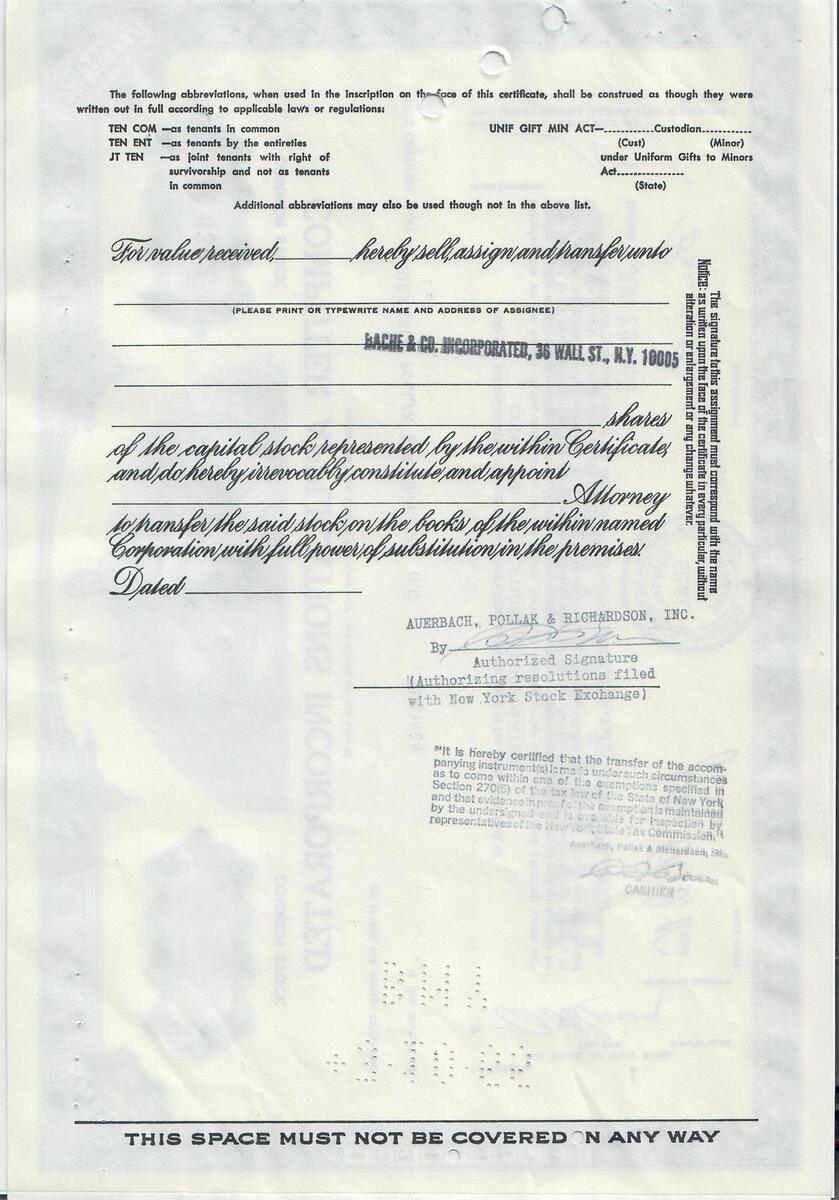 The following abbreviations, when used in the inscription on the face of this certificate, shall be construed as though they were
written out in full according to applicable laws or regulations:
TEN COM —as tenants in common
TEN ENT —as tenants by the entireties
JT TEN —as joint tenants with right of
survivorship and not as tenants
in common
UNIF GIFT MIN ACT—............Custodian............
(Cust) (Minor)
under Uniform Gifts to Minors
Act................
(State)
Additional abbreviations may also be used though not in the above list.
For value received,________hereby sell, assign and transfer unto
(PLEASE PRINT OR TYPEWRITE NAME AND ADDRESS OF ASSIGNEE)
BACHE & CO. INCORPORATED, 36 WALL ST., N.Y. 10005
shares
of the capital stock represented by the within Certificate,
and do hereby irrevocably constitute and appoint
Attorney
to transfer the said stock on the books of the within named
Corporation with full power of substitution in the premises.
Dated
The signature to this assignment must correspond with the name
Notice: as written upon the face of the certificate in every particular, without
alteration or enlargement or any change whatever.
AUERBACH, POLLAK & RICHARDSON, INC.
By
Authorized Signature
(Authorizing resolutions filed
with New York Stock Exchange)
"It is hereby certified that the transfer of the accom-
panying instrument(s) is made under such circumstances
as to come within one of the exemptions specified in
Section 270(5) of the tax law of the State of New York
and that evidence in proof of the exemption is maintained
by the undersigned and is available for inspection by
representatives of the New York State Tax Commission."
Auerbach, Pollak & Richardson, Inc.
CASHIER
THIS SPACE MUST NOT BE COVERED IN ANY WAY